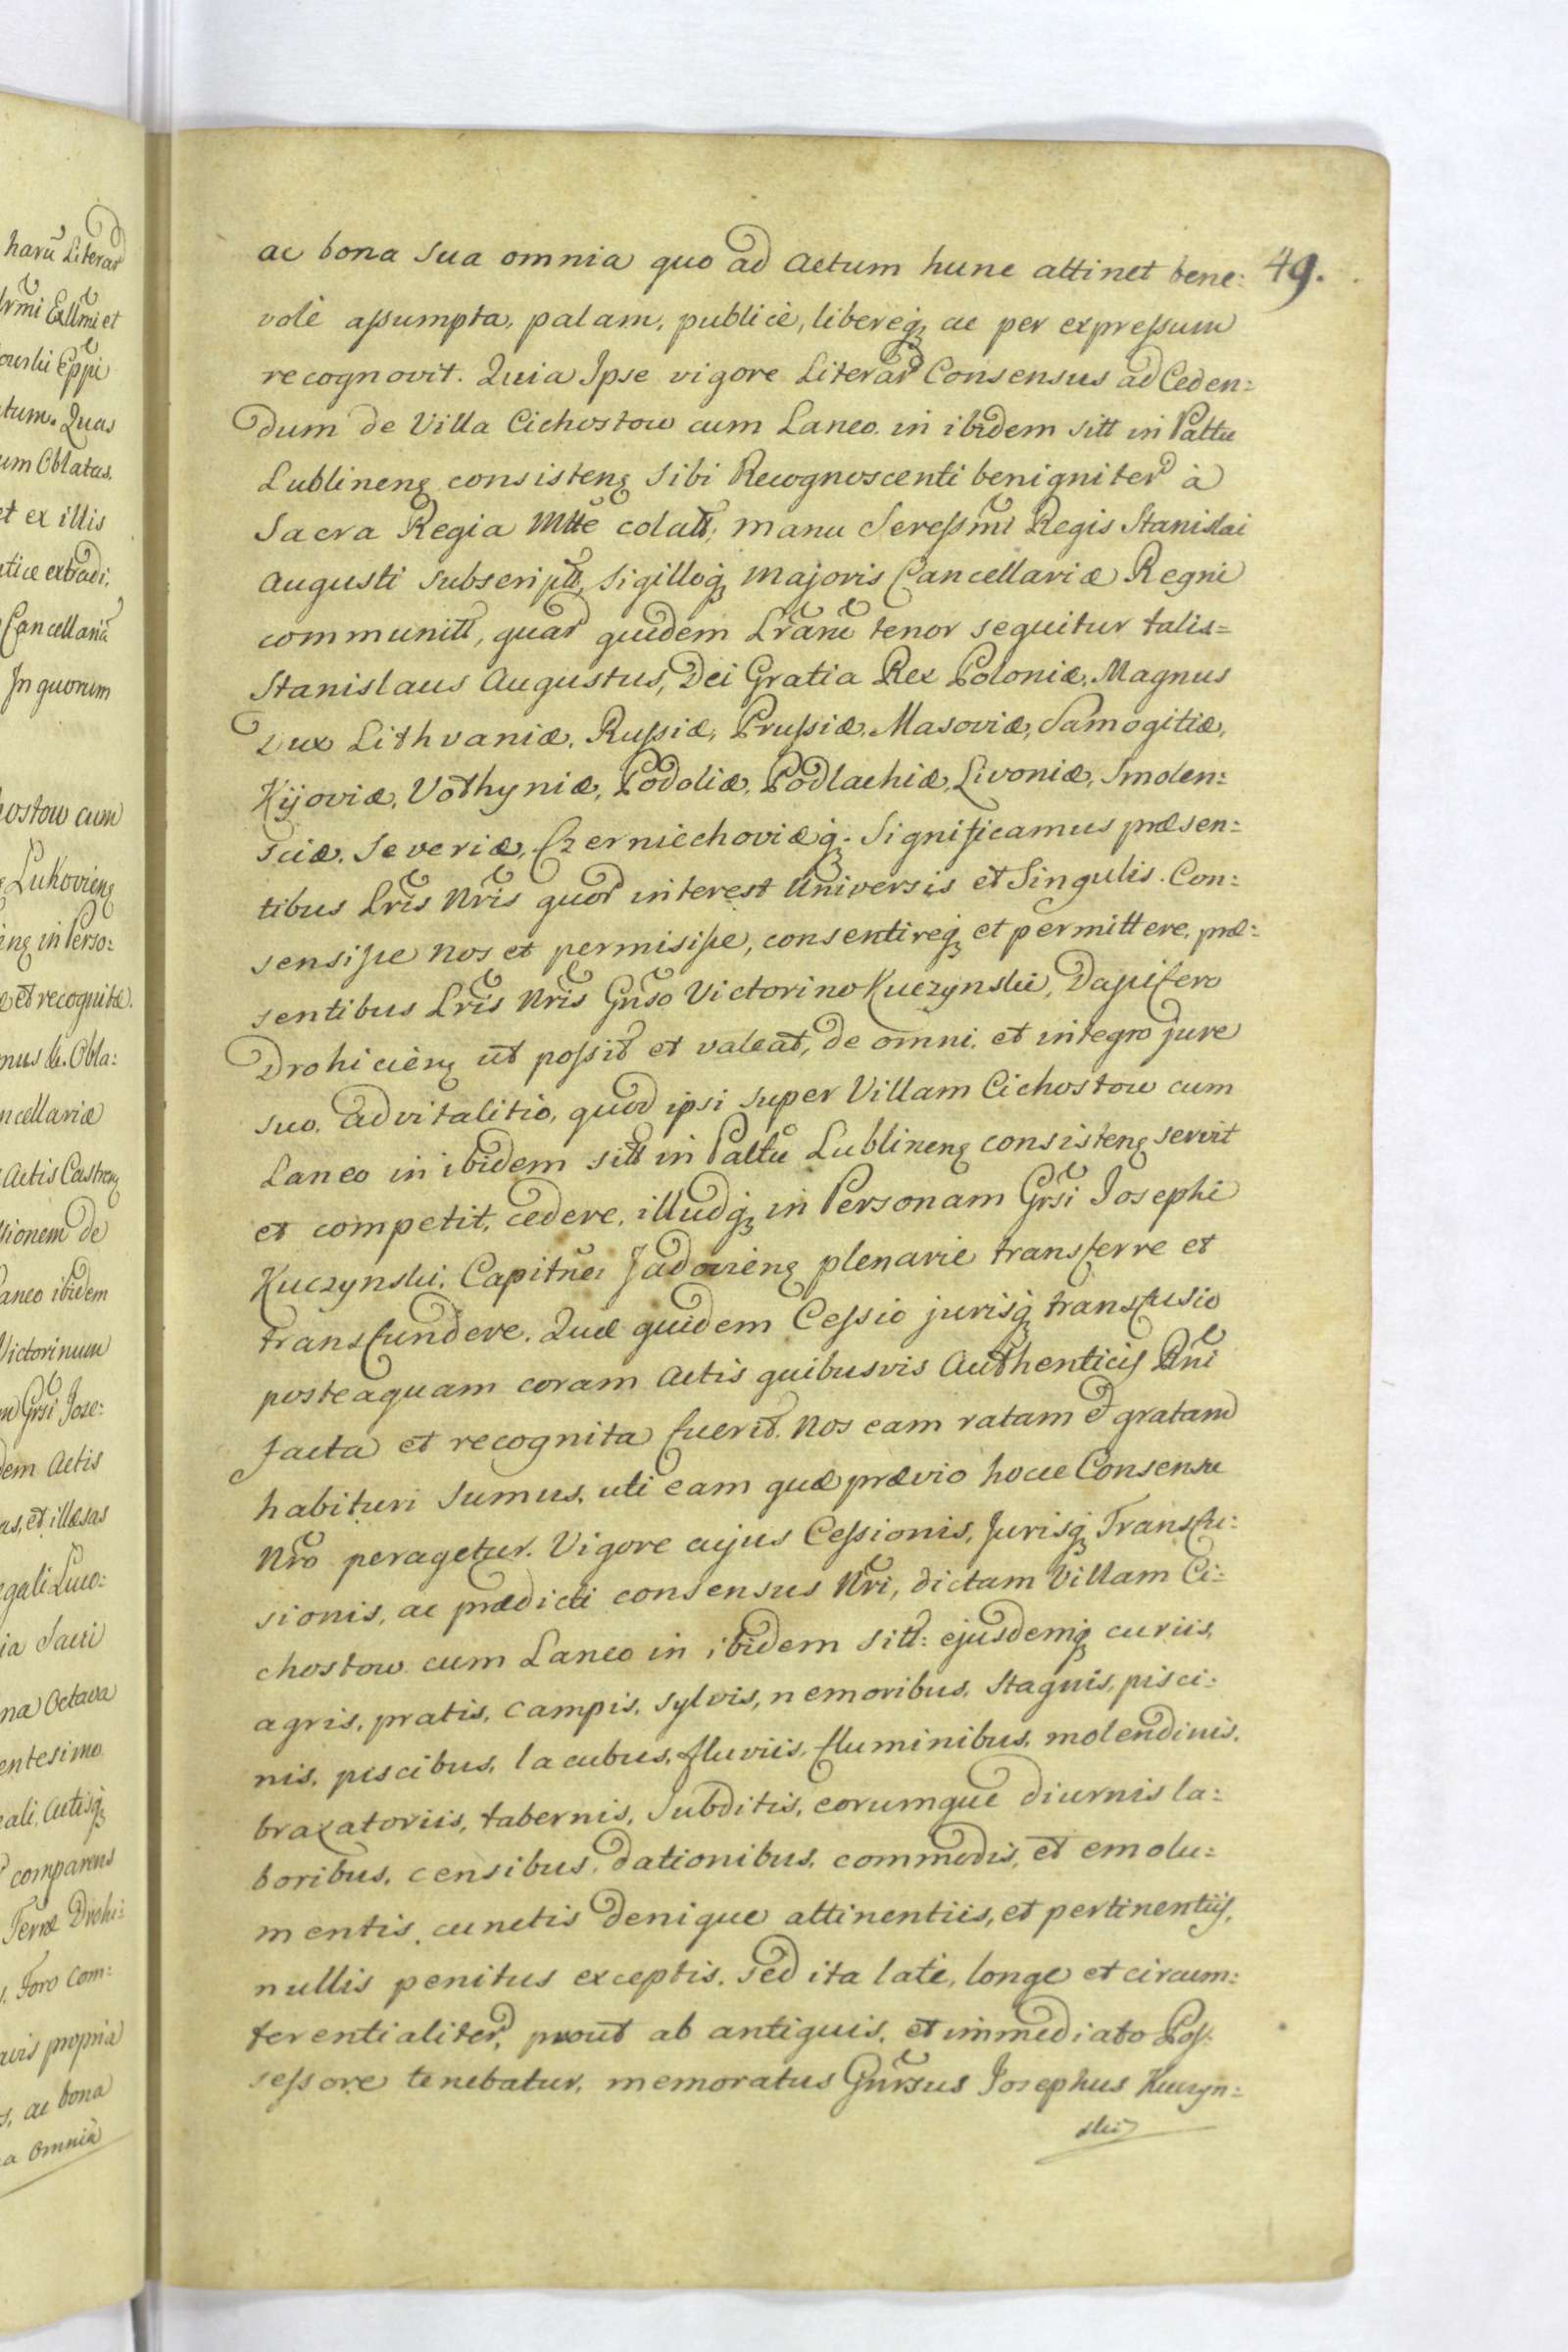 harũ Literar
Ill̃rmi Exll̃mi et
Ep̃pi
tum. Quas
um Oblatas,
et ex illis
extradi,
Cancellariæ
In quorum
hostow cum
Lukovienꝫ
enꝫ in Perso:
et recognitæ.
mus &. Obla:
ncellariæ
Actis Castrenꝫ
sionem de
Laneo ibidem
Victorinum
m Gr̃si Jose:
dem Actis
as, et illæsas
egali Luco:
ia Sacri
na Octava
entesimo
eali, Actisq́ꝫ
comparens
Terræ Drohi:
Foro Com:
uris propria
s, ac bona
a omnia
ac bona Sua omnia quo ad Actum hunc attinet bene: 49.
volè aſsumpta, palam, publicè, libereq́ꝫ ac per expreſsum
recognovit. Quia Ipse vigore Literar Consensus ad Ceden:
dum de Villa Cichostow cum Laneo in ibidem sitt in Pattu
Lublinenꝫ consistenꝫ Sibi Recognoscenti benigniter à
Sacra Regia Mtte colatt, manu Sereſsmi Regis Stanislai
Augusti subscriptt, Sigilloq́ꝫ Majoris Cancellariæ Regni
communitt, quar quidem Lr̃arũ tenor sequitur talis=
Stanislaus Augustus, Dei Gratia Rex Poloniæ, Magnus
Dux Lithvaniæ, Ruſsiæ, Pruſsiæ, Masoviæ, Samogitiæ,
Kijoviæ, Volhyniæ, Podoliæ, Podlachiæ, Livoniæ, Smolen:
sciæ, Severiæ, Czerniechoviæq́ꝫ. Significamus præsen:
tibus Lr̃is Nr̃is quor interest Universis et Singulis. Con:
sensiſse Nos et permisiſse, consentireq́ꝫ et permittere, præ:
sentibus Lr̃is Nr̃is Gnr̃so Victorino Kuczynski, Dapifero
Drohicienꝫ ut poſsit et valeat, de omni et integro jure
suo, advitalitio, quod ipsi super Villam Cichostow cum
Laneo in ibidem sitt in Pattũ Lublinenꝫ consistenꝫ servit
et competit, cedere, illudq́ꝫ in Personam Gr̃si Josephi
Kuczynski, Capitñei Jadovienꝫ plenarie transferre et
transfundere. Quæ quidem Ceſsio jurisq́ꝫ transfusio
posteaquam coram Actis quibusvis Authenticis Rñi
facta et recognita fuerit. Nos eam ratam et gratam
habituri Sumus, uti eam quæ prævio hocce Consensu
Nr̃o peragetur. Vigore cujus Ceſsionis, Jurisq́ꝫ Transfu:
sionis, ac prædicti consensus Nr̃i, dictam Villam Ci:
chostow cum Laneo in ibidem sitt: ejusdemq́ꝫ curiis,
agris, pratis, campis, sylvis, nemoribus, stagnis, pisci:
nis, piscibus, lacubus, fluviis, fluminibus, molendinis,
braxatoriis, tabernis, Subditis, eorumque diurnis la:
boribus, censibus, dationibus, commodis, et emolu:
mentis, cunctis denique attinentiis, et pertinentiis,
nullis penitus exceptis, sed ita latè, longe et circum:
ferentialiter, prout ab antiquis, et immediato Poſ:
seſsore tenebatur, memoratus Gnr̃sus Josephus Kuczyn:
ski